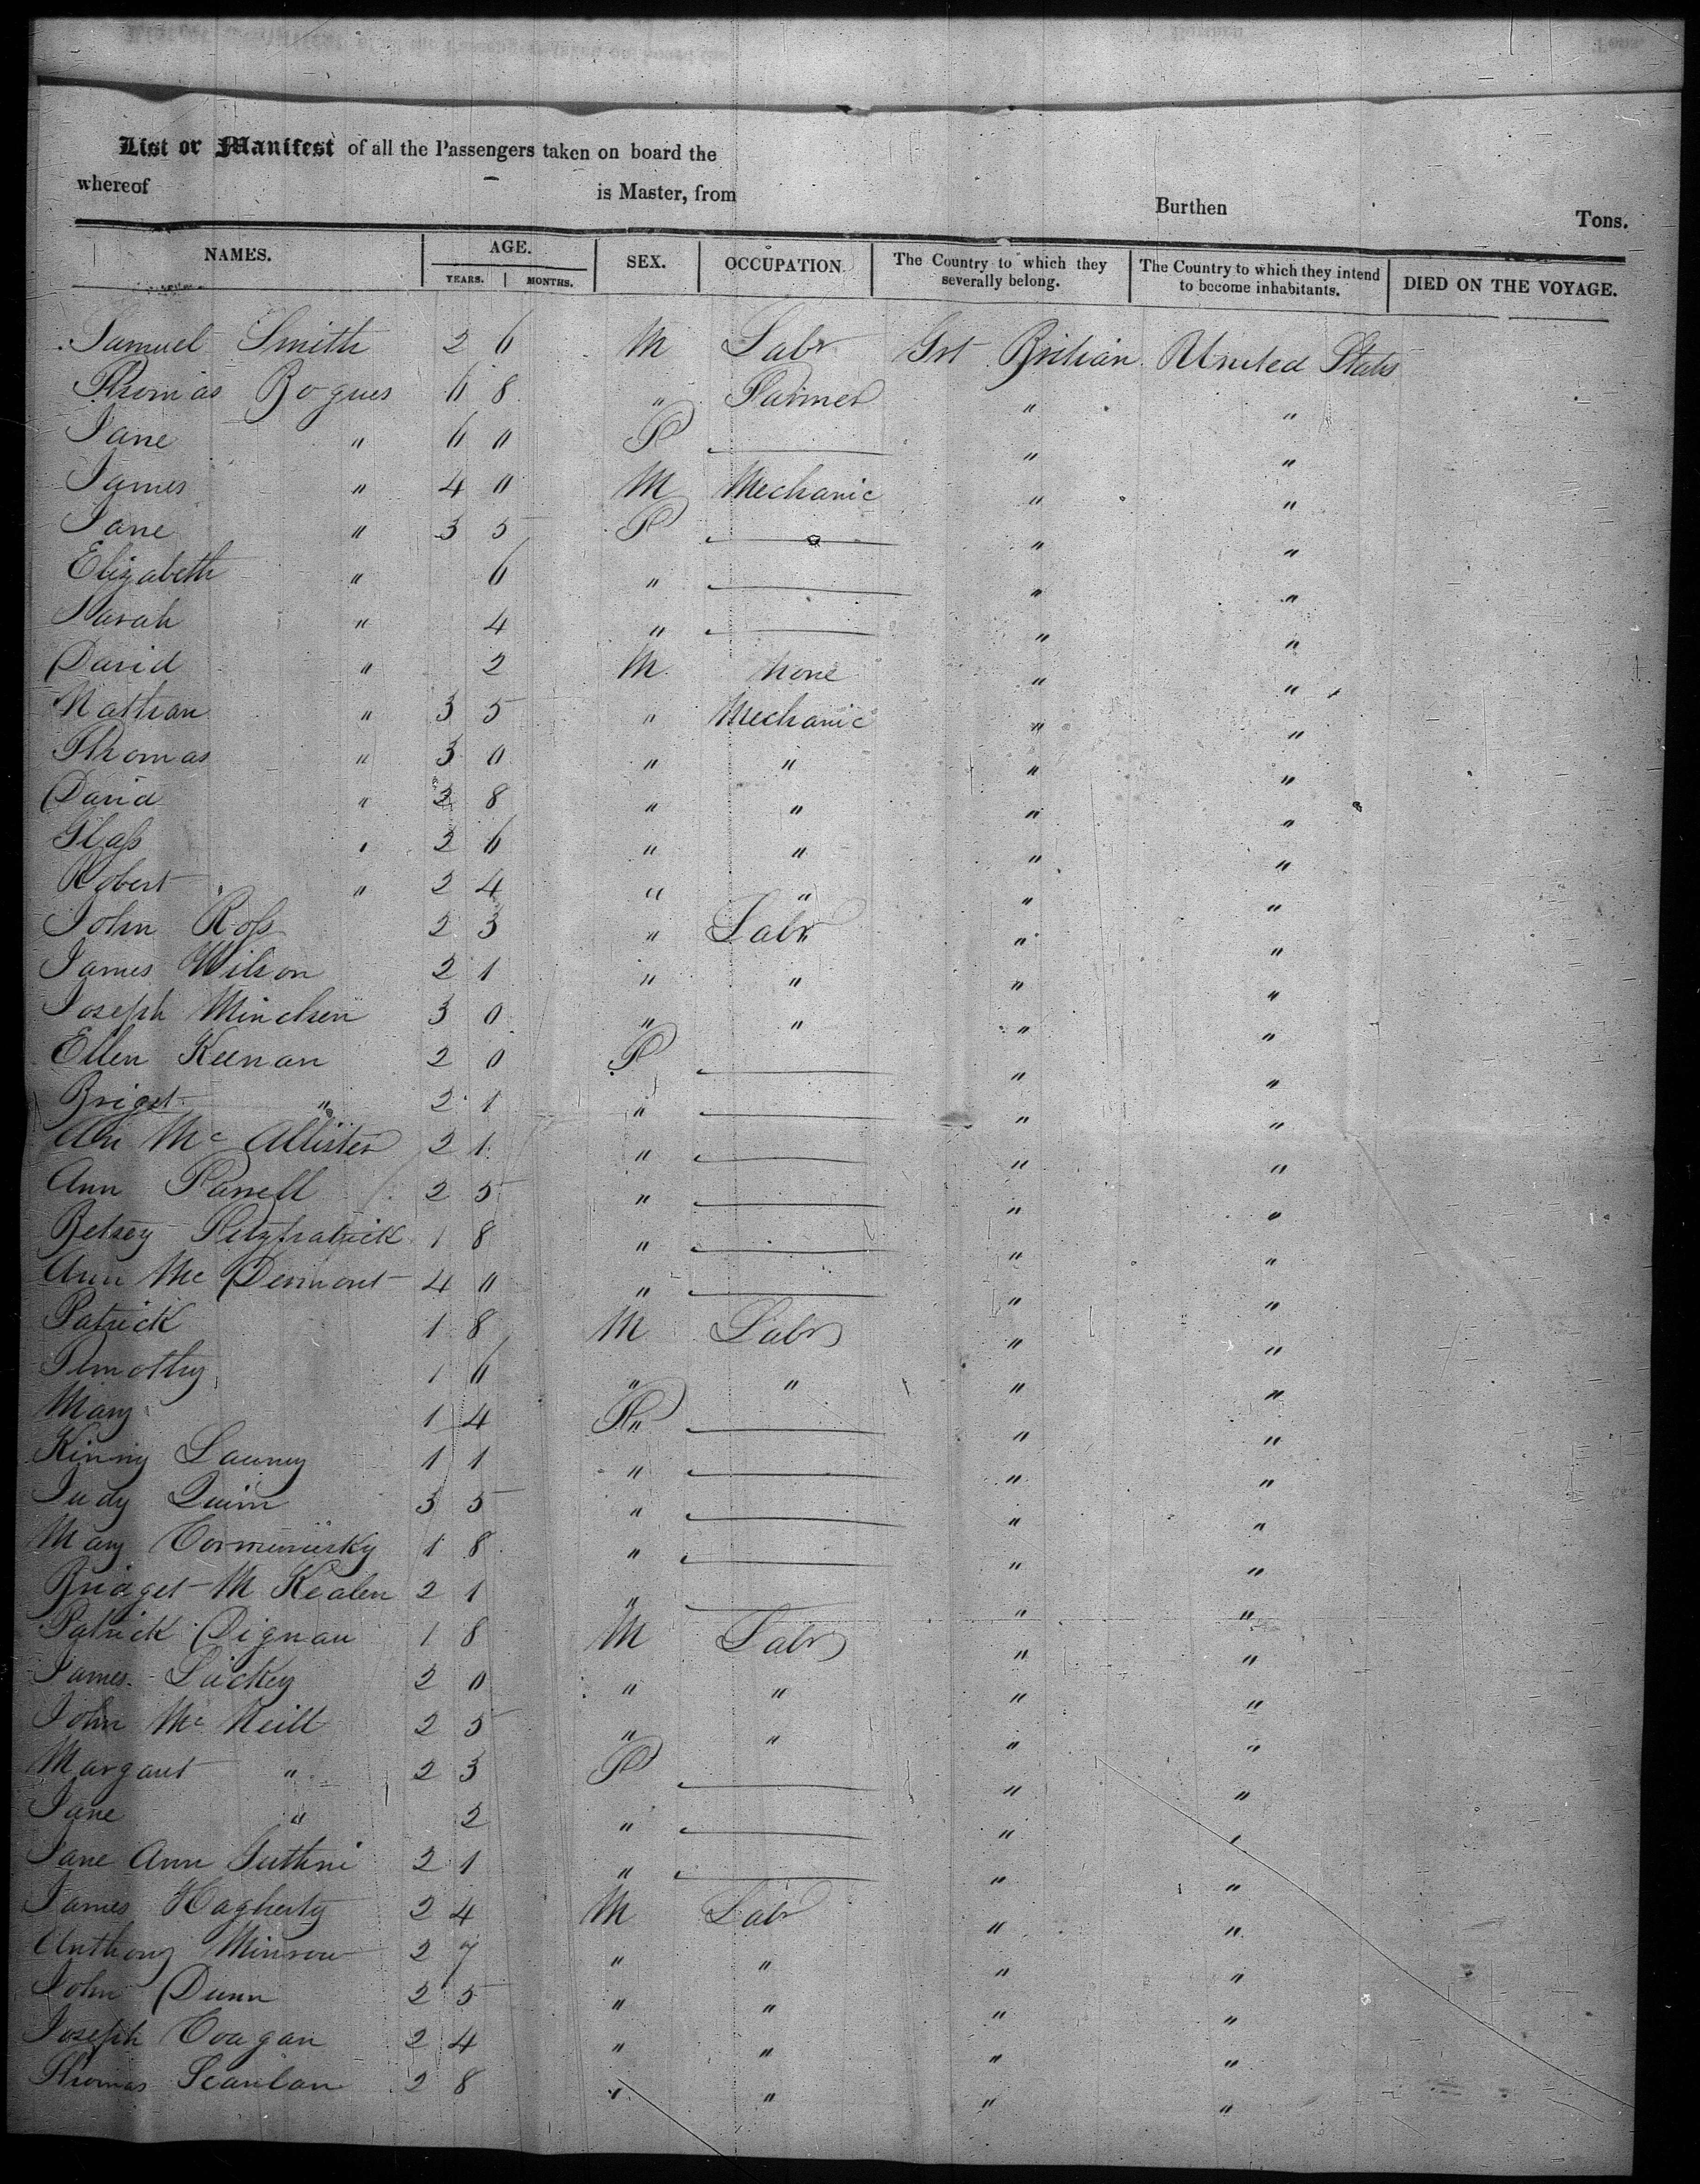 List or Manifest of all the Passengers taken on board the
whereof is Master, from Burthen Tons.
NAMES. AGE. SEX. OCCUPATION The Country to which they severally belong. The Country to which they intend to become inhabitants. DIED ON THE VOYAGE.
YEARS. MONTHS.
Samuel Smith 26 M Labr Grt Britian United States
Thomas Bogues 68 " Farmer " "
Jane " 60 F " "
James " 40 M Mechanic " "
Jane " 35 F " "
Elizabeth " 6 " " "
Sarah " 4 " " "
David " 2 M none " "
Nathan " 35 " Mechanic " "
Thomas " 30 " " " "
David " 28 " " " "
Glass " 26 " " " "
Robert " 24 " " " "
John Ross 23 " Labr " "
James Wilson 21 " " " "
Joseph Minchen 30 " " " "
Ellen Keenan 20 F " "
Briget " 21 " " "
Ann Mc Allister 21 " " "
Ann Farrell 25 " " "
Betsey Fitzpatrick 18 " " "
Ann Mc Dermont 40 " " "
Patrick 18 M Labr " "
Timothy 16 " " " "
Mary 14 F " " "
Kinny 11 " " "
Judy Quinn 35 " " "
Mary 18 " " "
Bridget M Kealen 21 " " "
Patrick Dignan 18 M Labr " "
James Luckey 20 " " " "
John Mc Neill 25 " " " "
Margaret " 23 F " "
Jane " 2 " " "
Jane Ann Guthrie 21 " " "
James Hagherty 24 M Labr " "
Anthony 27 " " " "
John Dunn 25 " " " "
Joseph Coagan 24 " " " "
Thomas Scanlan 28 " " " "